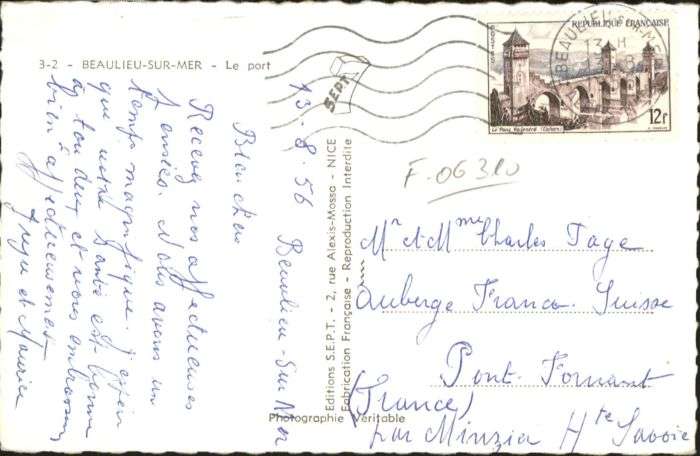 3-2 - BEAULIEU-SUR-MER - Le port
13-8-56 Beaulieu-Sur Mer
Bien chers
Recevez nos affectueuses
pensées. Nous avons un
temps magnifique. J'espère
que votre Santé est bonne
à tou deux et nous embrassons
bien affectueusement
et Maurice
SEPT
Editions S.E.P.T. - 2, rue Alexis-Mossa - NICE
Fabrication Française - Reproduction Interdite
Photographie Véritable
POSTES
REPUBLIQUE FRANÇAISE
Le Pont Valentré (Cahors)
12f
BEAULIEU-SUR-MER
13 H
F. 06310
Mr et Mme Charles Page
Auberge Franco-Suisse
Pont-Fornant
(France)
par Minzier Hte Savoie